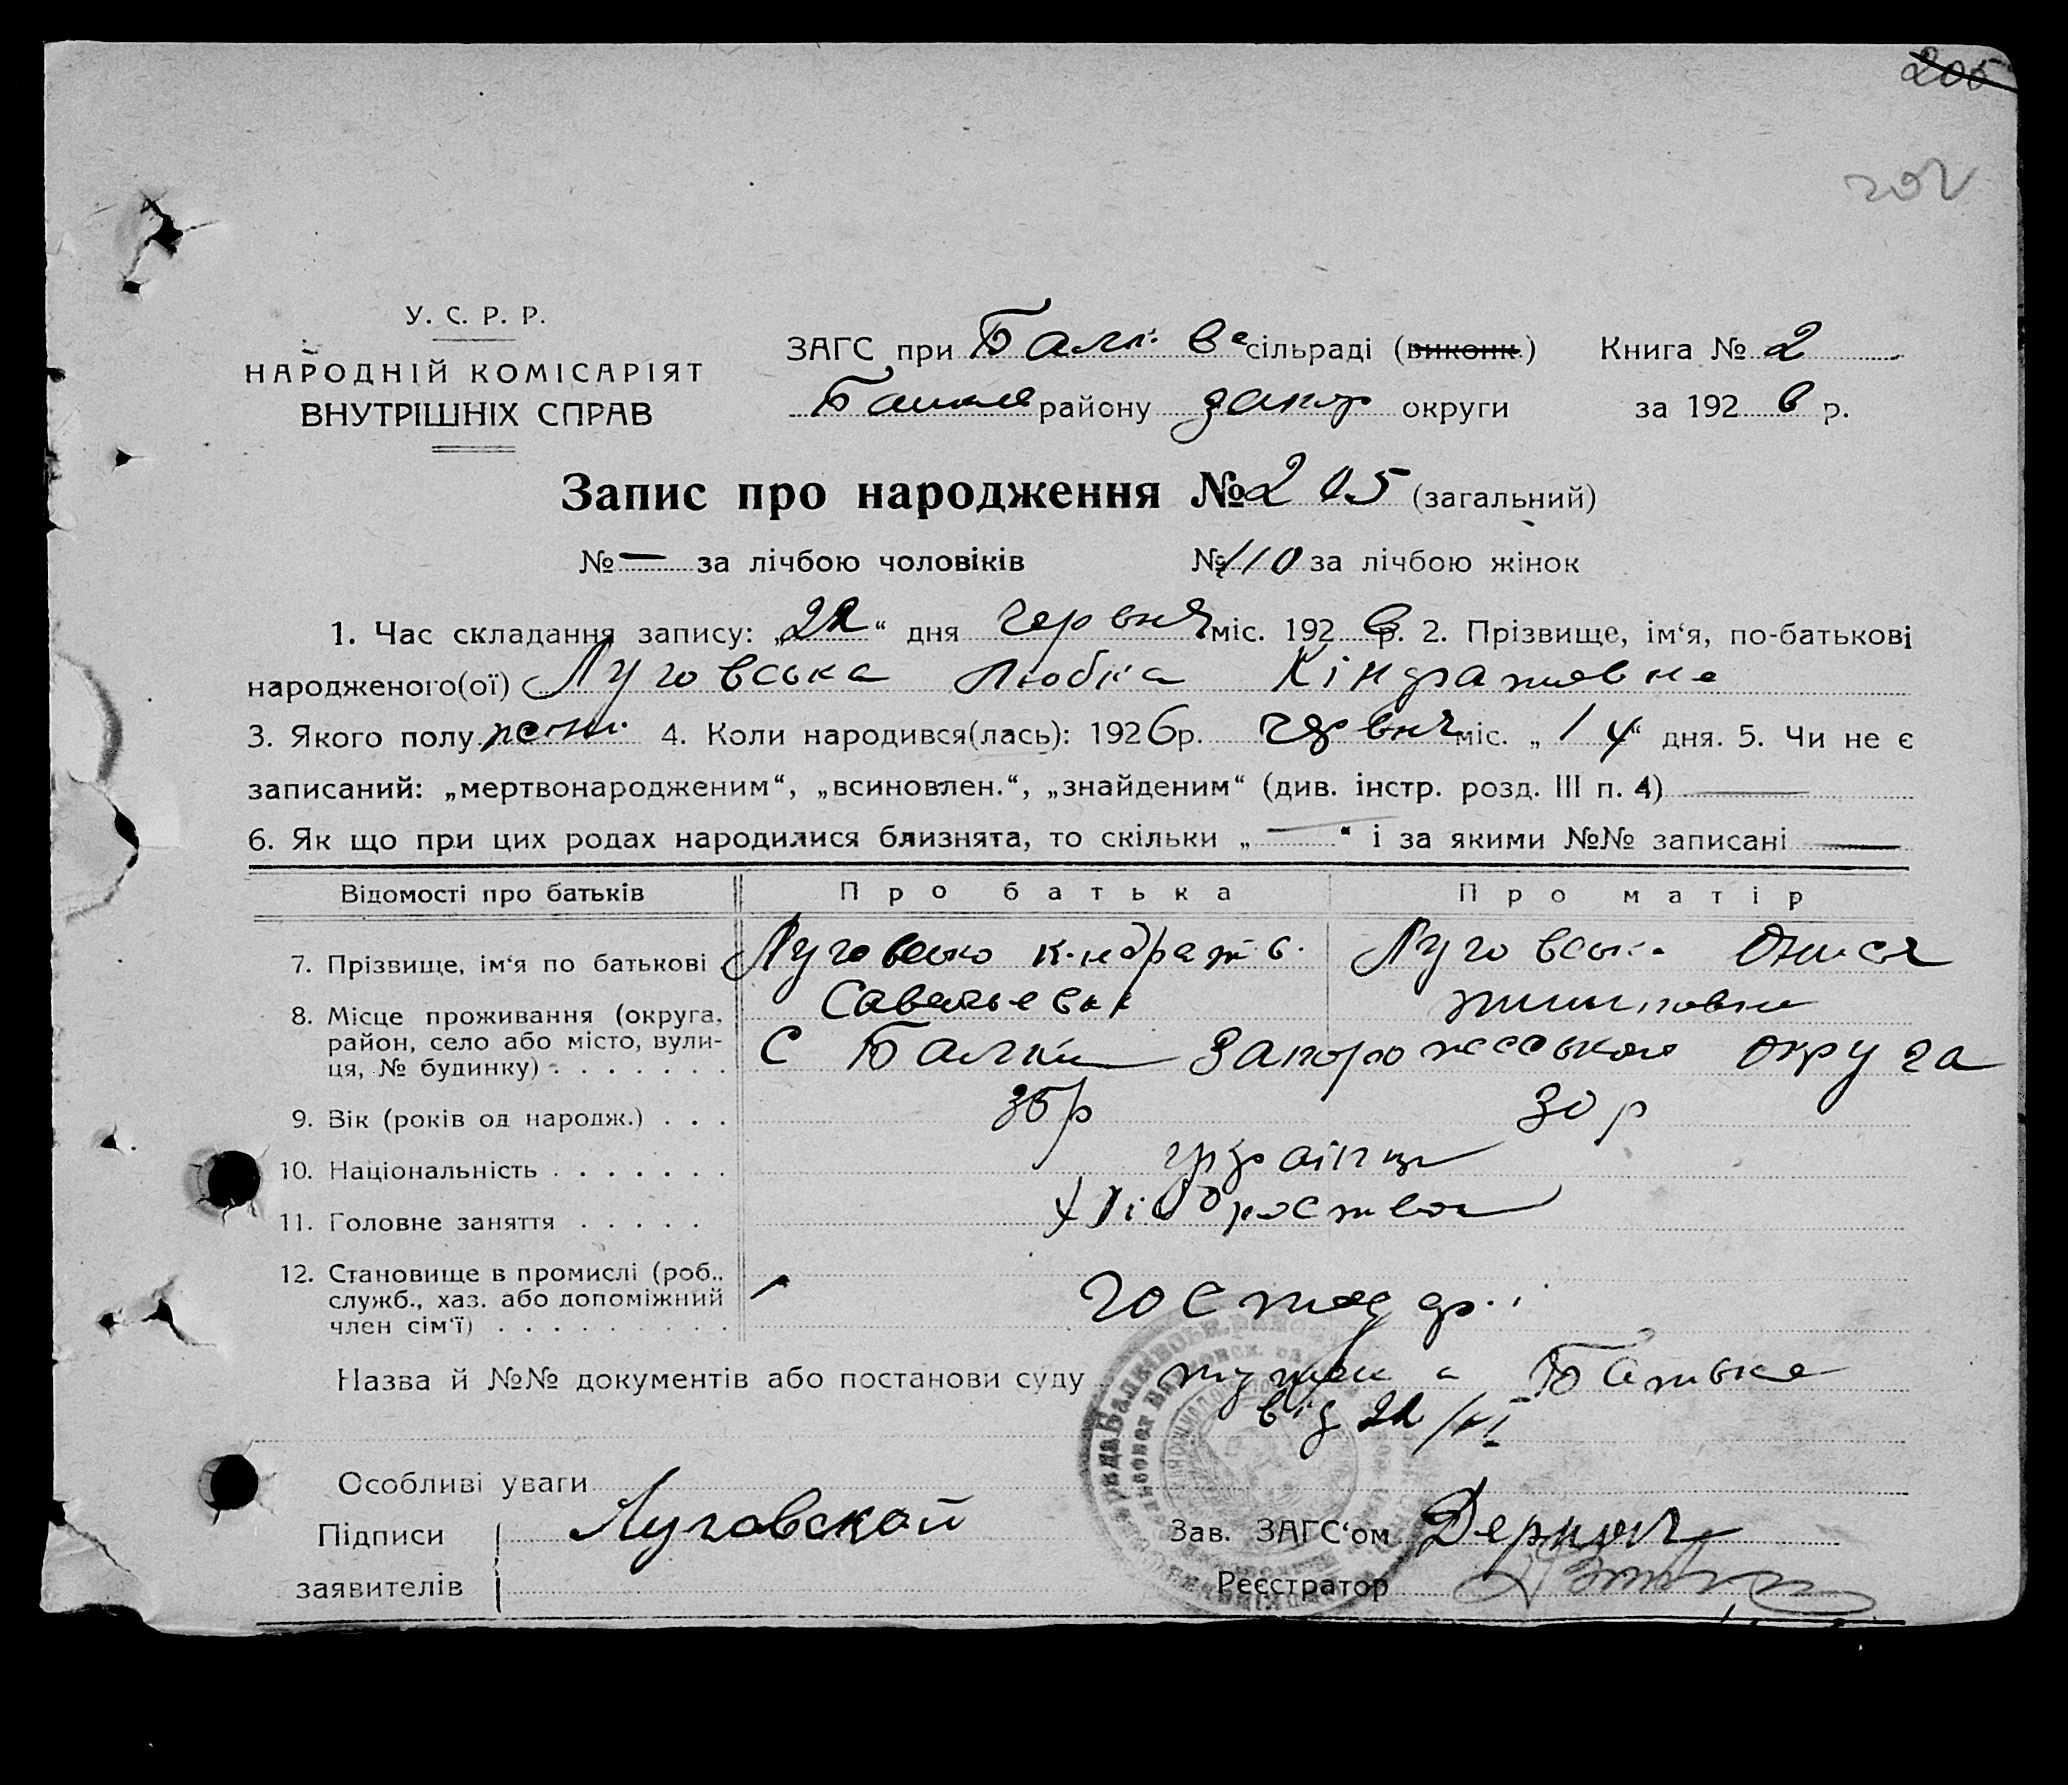 205
202
У. С. Р. Р.
НАРОДНІЙ КОМІСАРІЯТ
ВНУТРІШНІХ СПРАВ
ЗАГС при Балк. Ве сільраді (виконк.) Книга № 2
району Запор округи за 192 6 р.
Запис про народження № 205 (загальний)
№ — за лічбою чоловіків № 110 за лічбою жінок
1. Час складання запису: „22“ дня червня міс. 192 6 р. 2. Прізвище, ім‘я, по-батькові
народженого(ої) Луговська Любка Кіндратовна
3. Якого полу жін. 4. Коли народився(лась): 1926 р. червня міс. „14“ дня. 5. Чи не є
записаний: „мертвонародженим“, „всиновлен.“, „знайденим“ (див. інстр. розд. III п. 4) —
6. Як що при цих родах народилися близнята, то скільки „—“ і за якими №№ записані —
Відомості про батьків Про батька Про матір
7. Прізвище, ім‘я по батькові Кіндрат Луговська
8. Місце проживання (округа,
район, село або місто, вули-
ця, № будинку) . . . . . . . С Балки Запорожеської округа
9. Вік (років од народж.) . . . 30 р
10. Національність . . . . . . . українці
11. Головне заняття . . . . . хліборобство
12. Становище в промислі (роб.,
служб., хаз. або допоміжний
член сім‘ї) . . . . . . . . . господарі
Назва й №№ документів або постанови суду Батька
від 22/VI
Особливі уваги
Підписи Луговской Зав. ЗАГС‘ом
заявителів Реєстратор